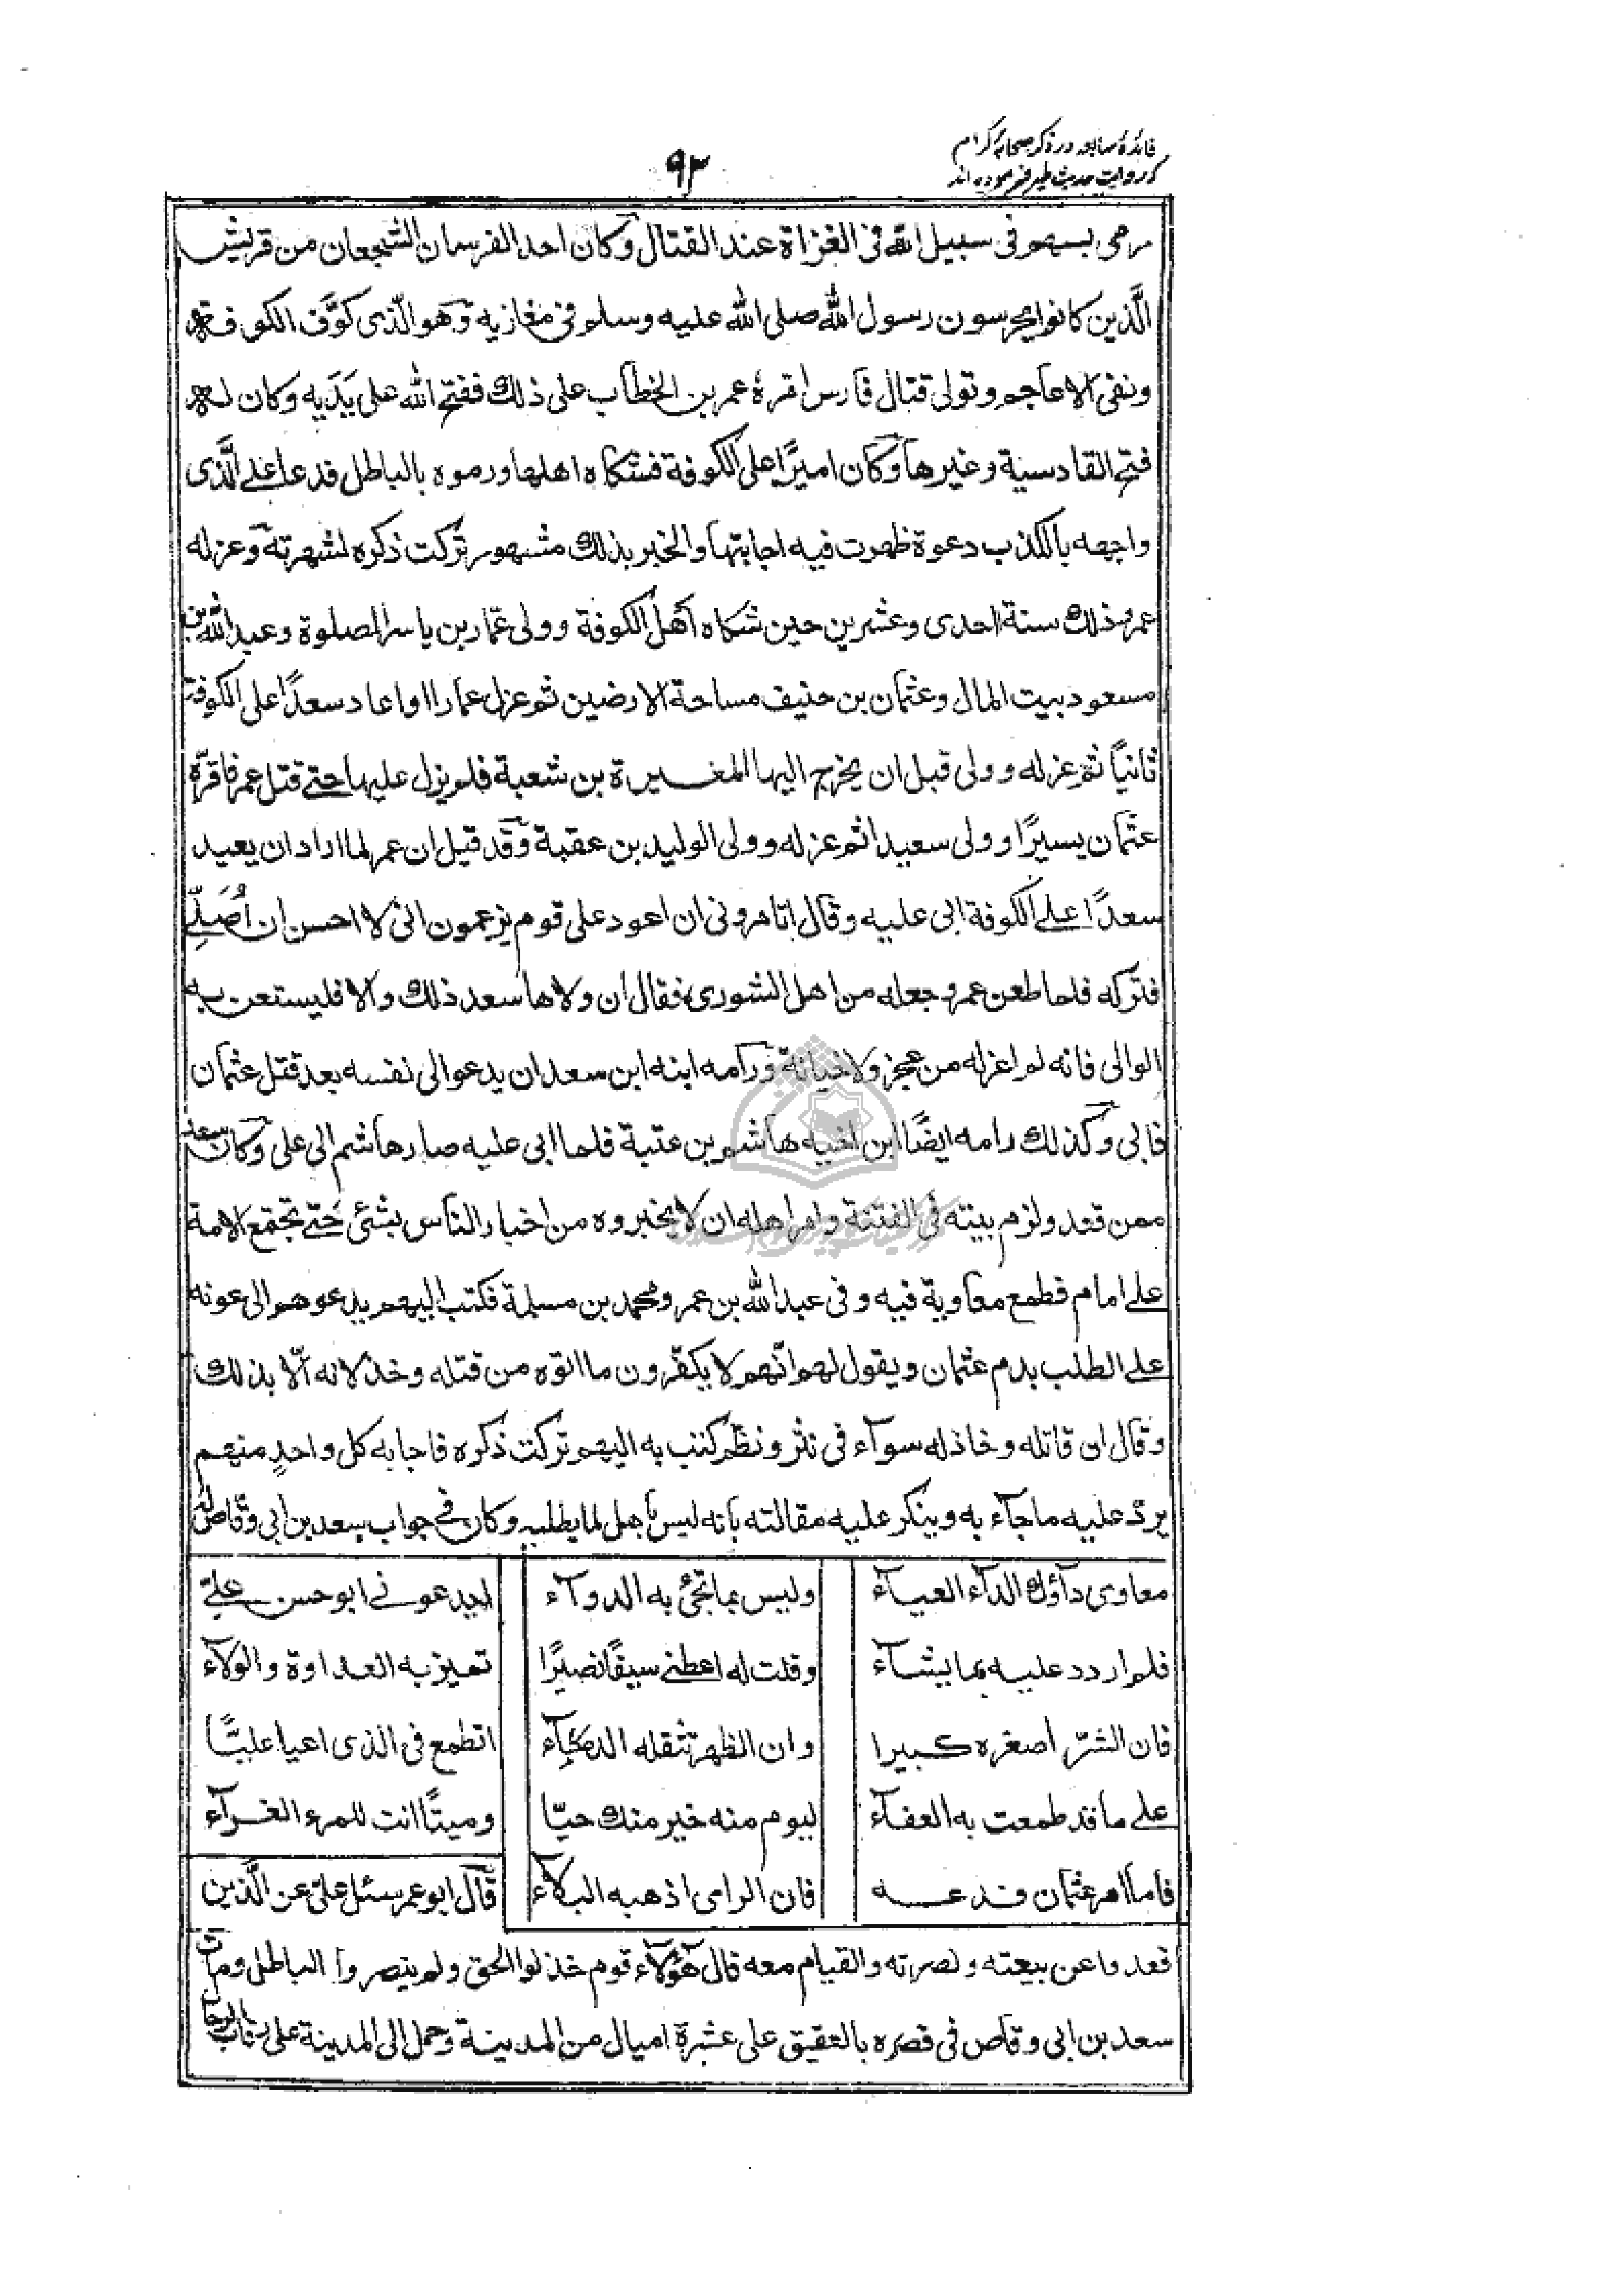 فائدهٔ سابعه در ذکر صحابهٔ کرام
که روایت حدیث طیر فرموده اند
۹۳
رمى بسهم فى سبيل الله فى الغزاة عند القتال وكان احد الفرسان الشجعان من قريش
الّذين كانوا يحرسون رسول الله صلى الله عليه وسلم فى مغازيه وهو الّذى كوّف الكوفة
ونفى الاعاجم وتولى قتال فارس امره عمر بن الخطاب على ذلك ففتح الله على يَدَيه وكان له
فتح القادسية وغيرها وكان اميرًا على الكوفة فشكاه اهلها ورموه بالباطل فدعا على الّذى
واجهه بالكذب دعوة ظهرت فيه اجابتها والخبر بذلك مشهور تركت ذكره لشهرته وعزله
عمر وذلك سنة احدى وعشرين حين شكاه اهل الكوفة وولى عمّار بن ياسر الصلوة وعبد الله بن
مسعود بيت المال وعثمان بن حنيف مساحة الارضين ثم عزل عمارا واعاد سعدًا على الكوفة
ثانيًا ثم عزله وولى قبل ان يخرج اليها المغيرة بن شعبة فلم يزل عليها حتى قتل عمر فاقرّه
عثمان يسيرًا وولى سعيدا ثم عزله وولى الوليد بن عقبة وقد قيل ان عمر لما اراد ان يعيد
سعدًا على الكوفة ابى عليه وقال اتامرونى ان اعود على قوم يزعمون انى لا احسن ان أُصَلّى
فتركه فلما طعن عمر وجعله من اهل الشورى فقال ان ولاها سعد ذلك والا فليستعن به
الوالى فانه لم اعزله من عجز ولا خيانة ورامه ابنه ابن سعد ان يدعو الى نفسه بعد قتل عثمان
فابى وكذلك رامه ايضًا ابن اخيه هاشم بن عتبة فلما ابى عليه صار هاشم الى على وكان سعد
ممن قعد ولزم بيته فى الفتنة وامر اهله ان لا يخبروه من اخبار الناس بشئ حتى تجتمع الامة
على امام فطمع معاوية فيه وفى عبد الله بن عمر ومحمد بن مسلمة فكتب اليهم يدعوهم الى عونه
على الطلب بدم عثمان ويقول لهم انّهم لا يكفّرون ما اتوه من قتله وخذلانه الّا بذلك
وقال ان قاتله وخاذله سوآء فى نثر ونظم كتب به اليهم تركت ذكره فاجابه كل واحدٍ منهم
يردّ عليه ما جآء به وينكر عليه مقالته بانه ليس باهل لما يطلبه وكان فى جواب سعد بن ابى وقاص له
معاوى دآؤك الدآء العيآء وليس بما تجئ به الدوآء ايدعونى ابو حسن علىّ
فلم اردد عليه بما يشآء وقلت له اعطنى سيفًا نصيرًا تميز به العداوة والولآء
فان الشرّ اصغره كبيرا وان الظهر تثقله الدمآء اتطمع فى الذى اعيا عليًّا
على ما قد طمعت به العفآء ليوم منه خير منك حيّا وميتًا انت للمرء الفدآء
فاما امر عثمان فدعه فان الراى اذهبه البلآء قال ابو عمر سئل على عن الّذين
قعدوا عن بيعته ونصرته والقيام معه قال هؤلآء قوم خذلوا الحق ولم ينصروا الباطل ومات
سعد بن ابى وقاص فى قصره بالعقيق على عشرة اميال من المدينة وحمل الى المدينة على رقاب الرجال